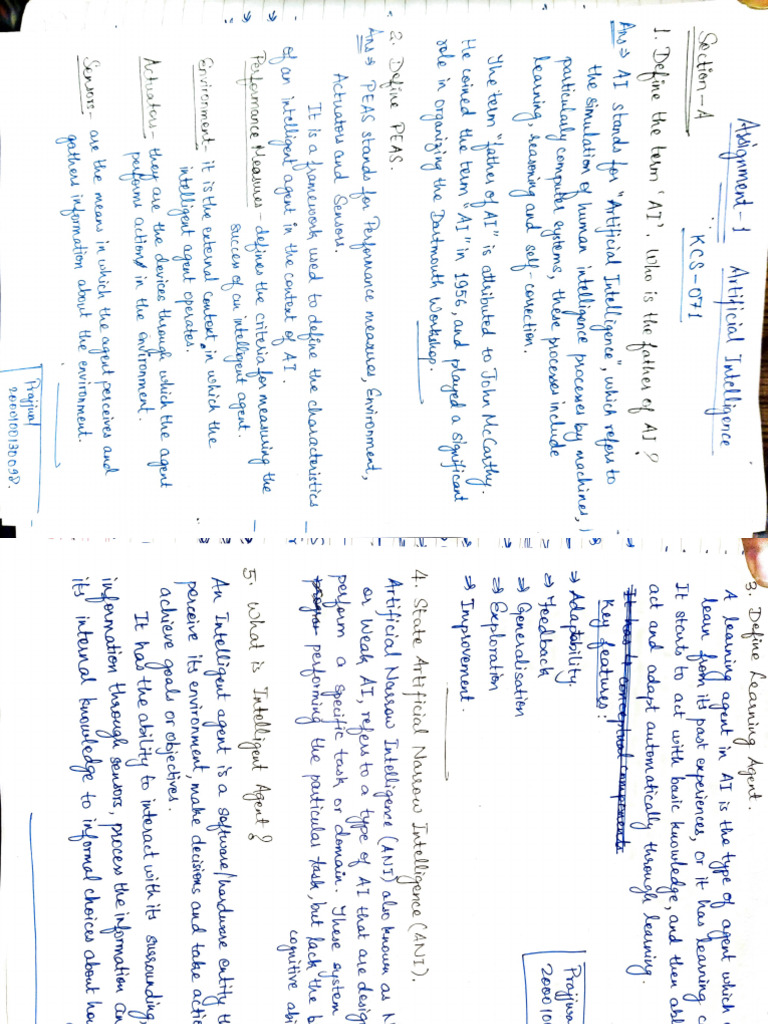 Assignment-1 Artificial Intelligence
KCS-071
Section-A
1. Define the term 'AI'. Who is the father of AI?
Ans⇒ AI stands for "Artificial Intelligence", which refers to
the simulation of human intelligence processes by machines,
particularly computer systems, these processes include
learning, reasoning and self-correction.
The term "father of AI" is attributed to John McCarthy.
He coined the term "AI" in 1956, and played a significant
role in organizing the Dartmouth Workshop.
2. Define PEAS.
Ans⇒ PEAS stands for Performance measures, Environment,
Actuators and Sensors.
It is a framework used to define the characteristics
of an intelligent agent in the context of AI.
Performance Measures - defines the criteria for measuring the
success of an intelligent agent.
Environment - it is the external context, in which the
intelligent agent operates.
Actuators - they are the devices through which the agent
performs action in the environment.
Sensors - are the means in which the agent perceives and
gathers information about the environment.
Prajjwal
2000100130098.
3. Define Learning Agent.
A learning agent in AI is the type of agent which
learn from its past experiences, or it has learning c
It starts to act with basic knowledge, and then abl
act and adapt automatically through learning.
It has 4 conceptual components
Key features:
⇒ Adaptability.
⇒ Feedback
⇒ Generalisation
⇒ Exploration
⇒ Improvement.
Prajjwa
200010
4. State Artificial Narrow Intelligence (ANI).
Artificial Narrow Intelligence (ANI) also known as N
or Weak AI, refers to a type of AI that are desig
perform a specific task or domain. These system
performing the particular task, but lack the b
cognitive abi
5. What is Intelligent Agent?
An Intelligent agent is a software/hardware entity th
perceive its environment, make decisions and take actio
achieve goals or objectives.
It has the ability to interact with its surrounding,
information through sensors, process the information an
its internal knowledge to informal choices about how